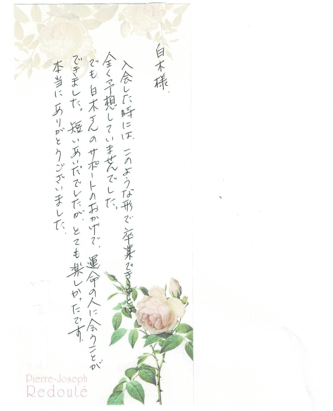 白木様
入会した時には、このような形で卒業できるとは
全く予想していませんでした。
でも白木さんのサポートのおかげで、運命の人に会うことが
できました。短いあいだでしたが、とても楽しかったです。
本当にありがとうございました。
Pierre-Joseph
Redouté